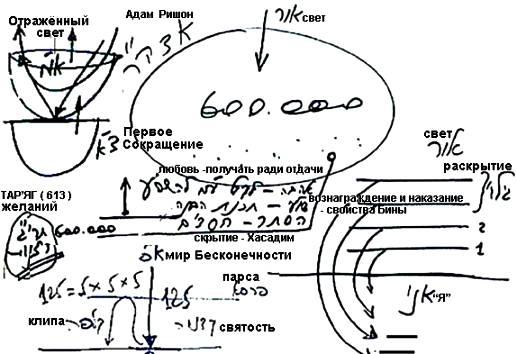 Адам Ришон
Отражённый
свет
אור свет
600.000
Первое
Сокращение
צ"א
свет
אור
раскрытие
גילוי
любовь -получать ради отдачи
ТАР'ЯГ ( 613 )
желаний
600.000
תרי"ג
вознаграждение и наказание
- свойства Бины
скрытие - Хасадим
2
1
мир Бесконечности
א"ס
парса
פרסה
125=5 x 5 x 5
125
אני "Я"
клипа
קליפה
святость
קדושה